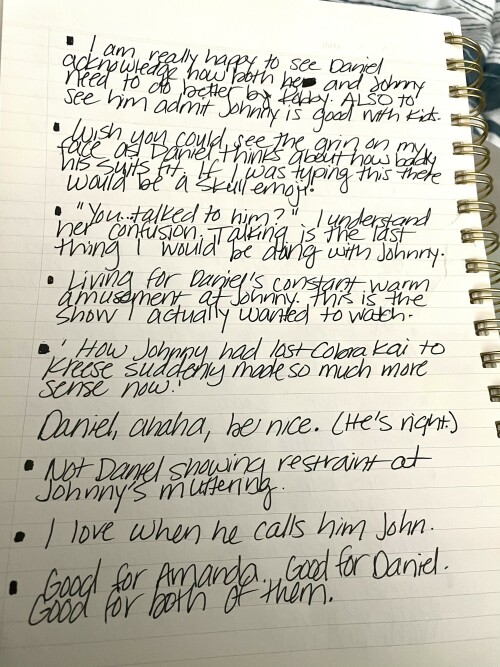 ▪ I am really happy to see Daniel
acknowledge how both he and Johnny
need to do better by Robby. ALSO to
see him admit Johnny is good with kids.
▪ Wish you could see the grin on my
face as Daniel thinks about how badly
his suits fit. If I was typing this there
would be a skull emoji.
▪ "You..talked to him?" I understand
her confusion. Talking is the last
thing I would be doing with Johnny.
▪ Living for Daniel's constant warm
amusement at Johnny. This is the
show I actually wanted to watch.
▪ 'How Johnny had lost Cobra Kai to
Kreese suddenly made so much more
sense now.'
Daniel, ahaha, be nice. (He's right.)
▪ Not Daniel showing restraint at
Johnny's muttering.
▪ I love when he calls him John.
▪ Good for Amanda. Good for Daniel.
Good for both of them.